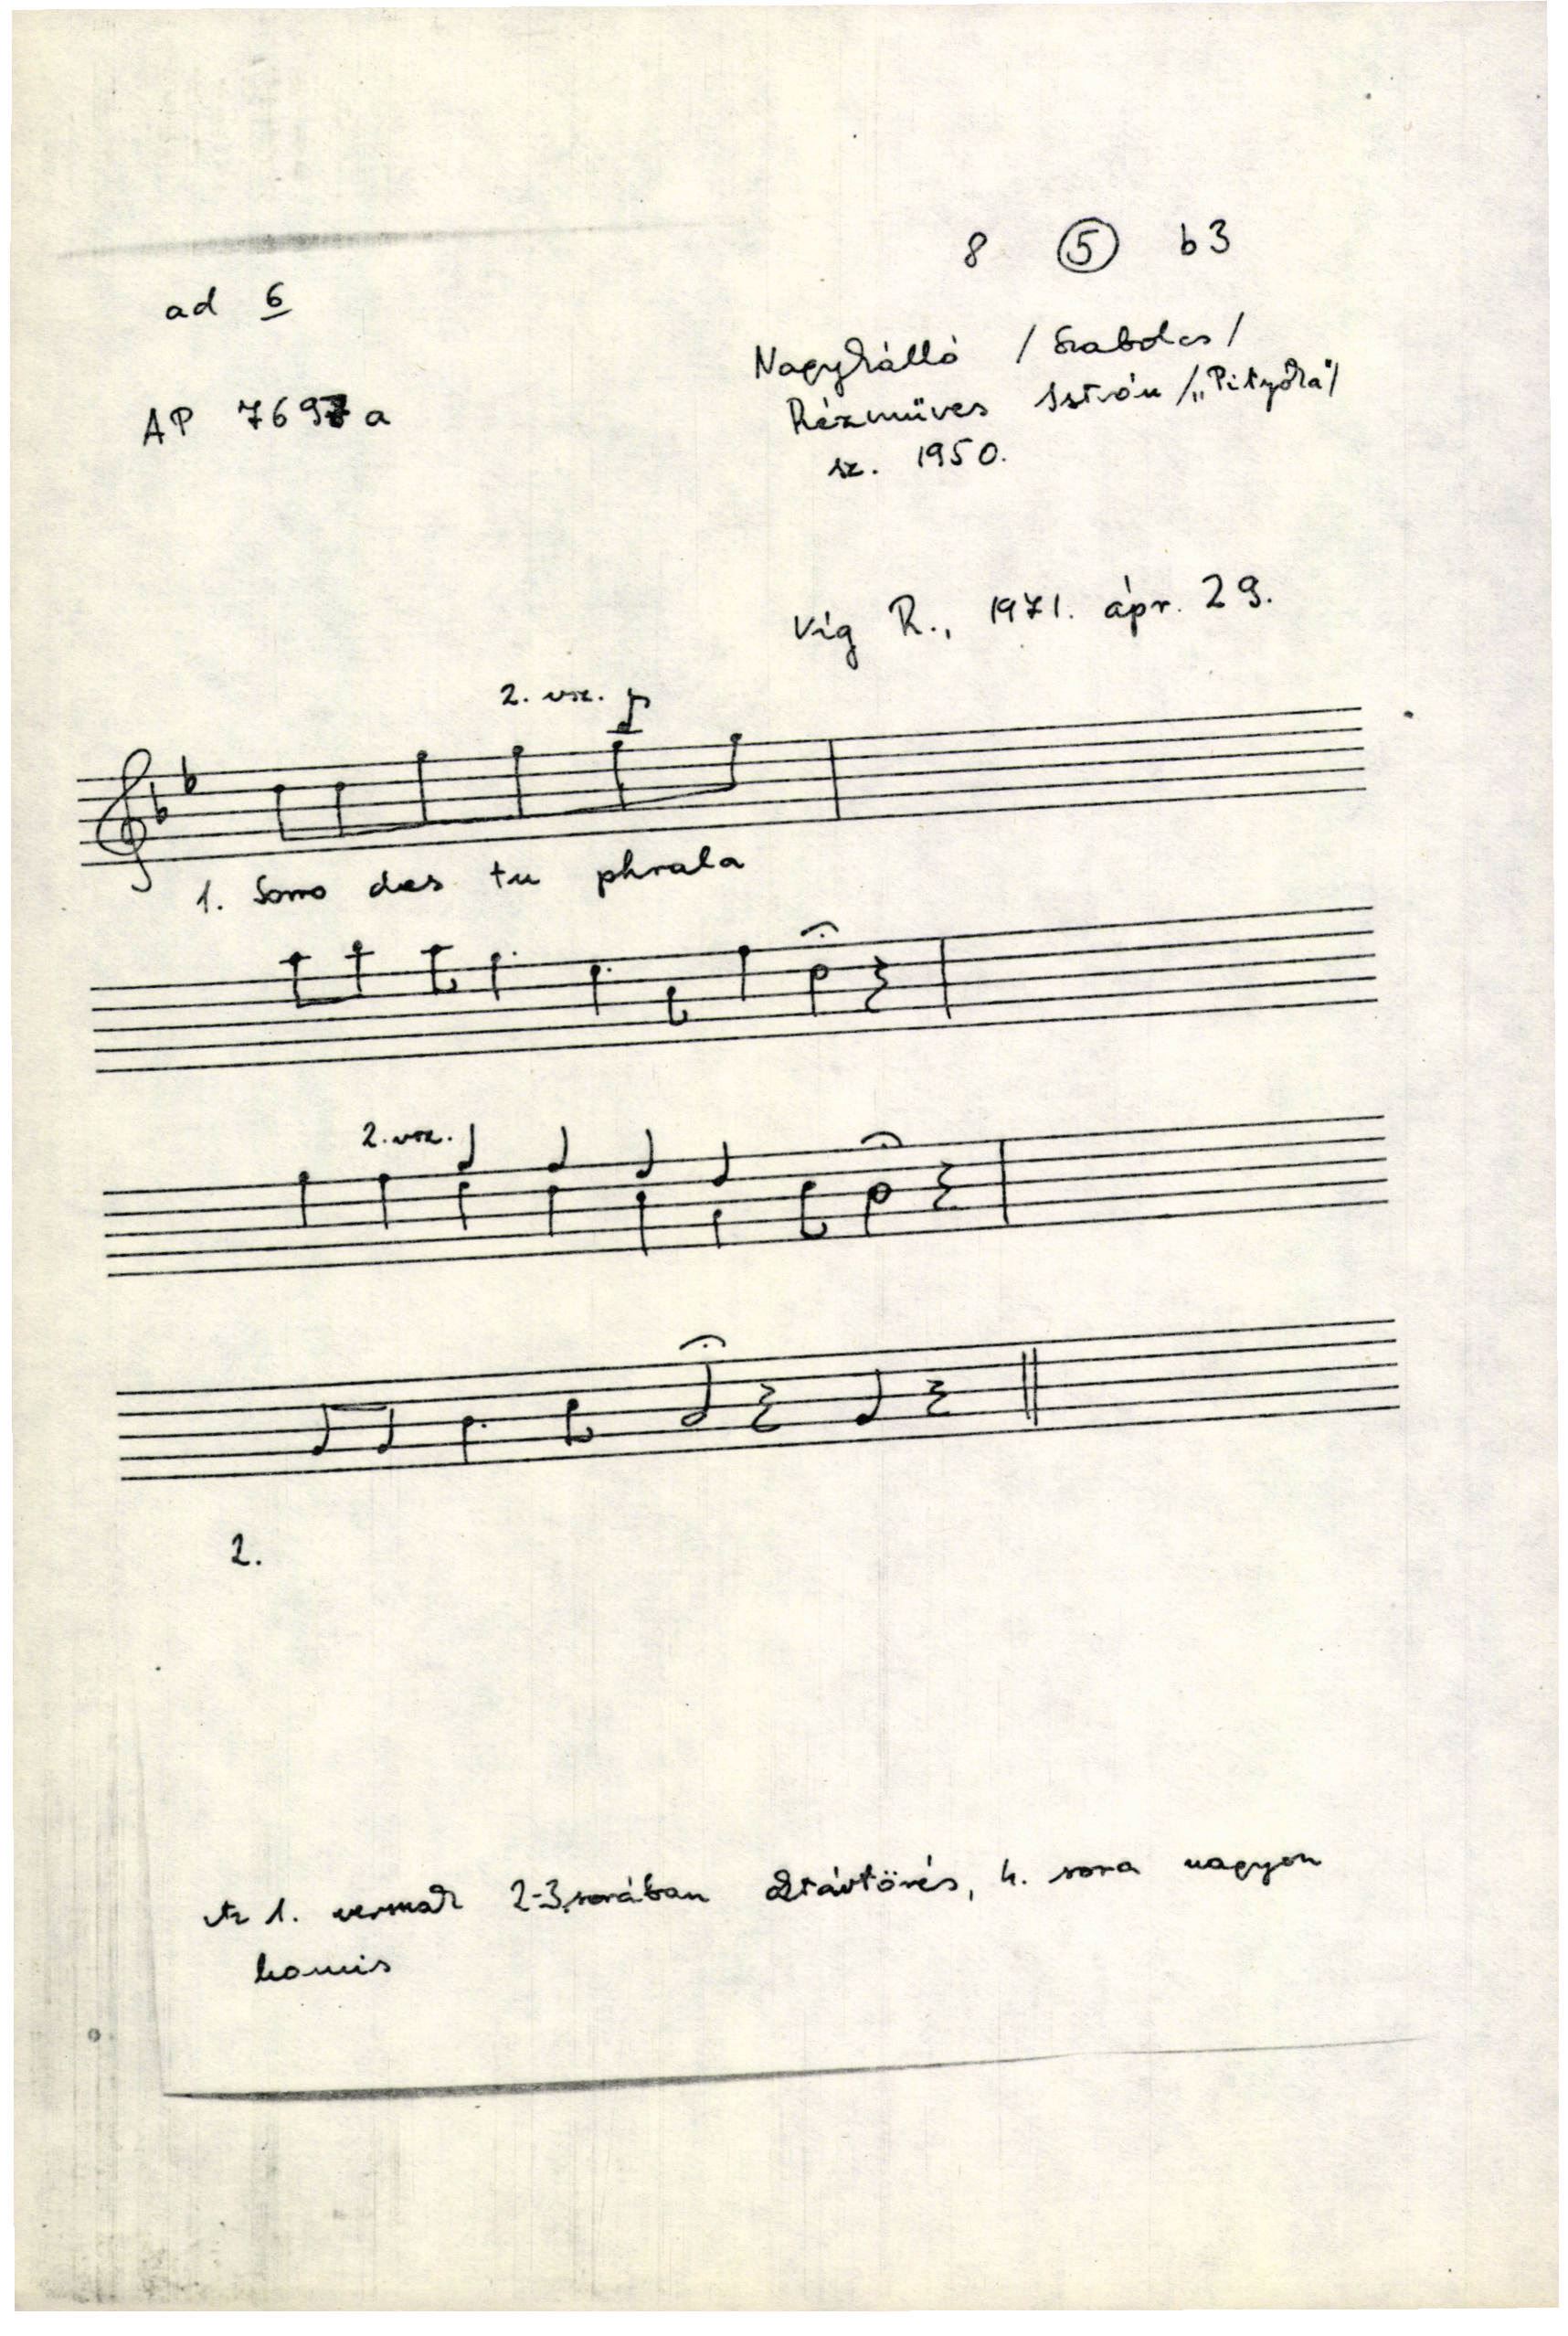 8 5 b3
ad 6
Nagykálló / Szabolcs /
AP 7697 a
Rézműves István /„Pityóka"/
sz. 1950.
Víg R., 1971. ápr. 29.
2. vsz.
1. Soro des tu phrala
2. vsz.
2.
Az 1. versszak 2-3. sorában oktávtörés, 4. sora nagyon
hamis